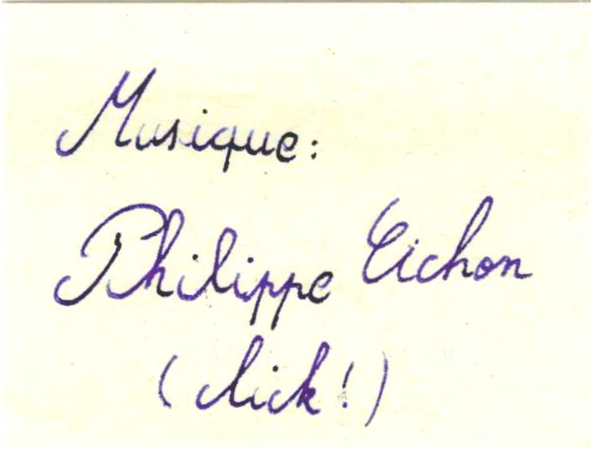 Musique:
Philippe Cichon
(click!)